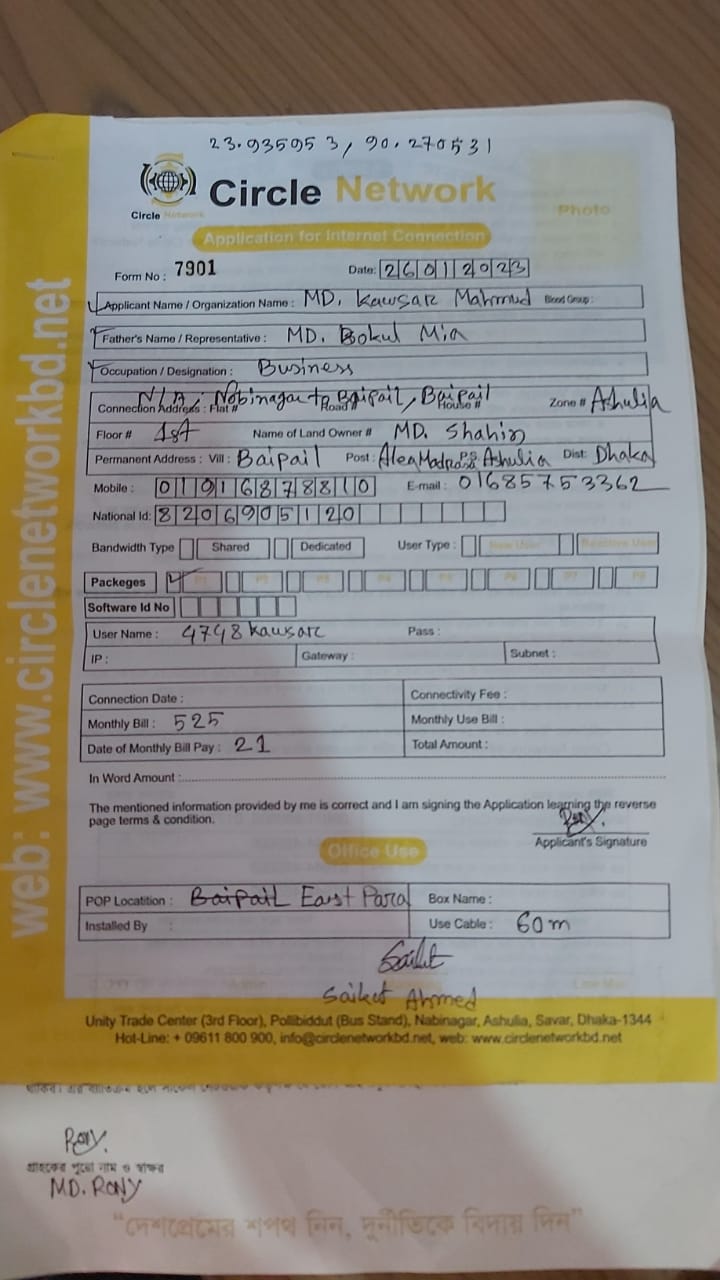 23.935953, 90.270531
Circle Network
Circle Network
Photo
Application for Internet Connection
Form No : 7901
Date: 26012023
Applicant Name / Organization Name : MD. Kawsar Mahmud Blood Group :
Father's Name / Representative : MD. Bokul Mia
Occupation / Designation : Business
N/A, Nobinagar to Baipail, Baipail
Connection Address : Flat # Road # House # Zone # Ashulia
Floor # 1st Name of Land Owner # MD. Shahin
Permanent Address : Vill : Baipail Post : Alea Madrasa P.S Ashulia Dist: Dhaka
Mobile : 01916878810 E-mail : 01685753362
National Id: 8206905120
Bandwidth Type Shared Dedicated User Type : New User Reactive User
Packeges P1 P2 P3 P4 P5 P6 P7 P8
Software Id No
User Name : 4748kawsar Pass :
IP : Gateway : Subnet :
Connection Date : Connectivity Fee :
Monthly Bill : 525 Monthly Use Bill :
Date of Monthly Bill Pay : 21 Total Amount :
In Word Amount :
The mentioned information provided by me is correct and I am signing the Application learning the reverse
page terms & condition.
Rony.
Applicant's Signature
Office Use
POP Locatition : Baipail East Para Box Name :
Installed By : Use Cable : 60m
Saikot
Saikot Ahmed
Unity Trade Center (3rd Floor), Pollibiddut (Bus Stand), Nabinagar, Ashulia, Savar, Dhaka-1344
Hot-Line: + 09611 800 900, info@circlenetworkbd.net, web: www.circlenetworkbd.net
web: www.circlenetworkbd.net
Rony.
গ্রাহকের পুরো নাম ও স্বাক্ষর
MD. RONY
“দেশপ্রেমের শপথ নিন, দুর্নীতিকে বিদায় দিন”